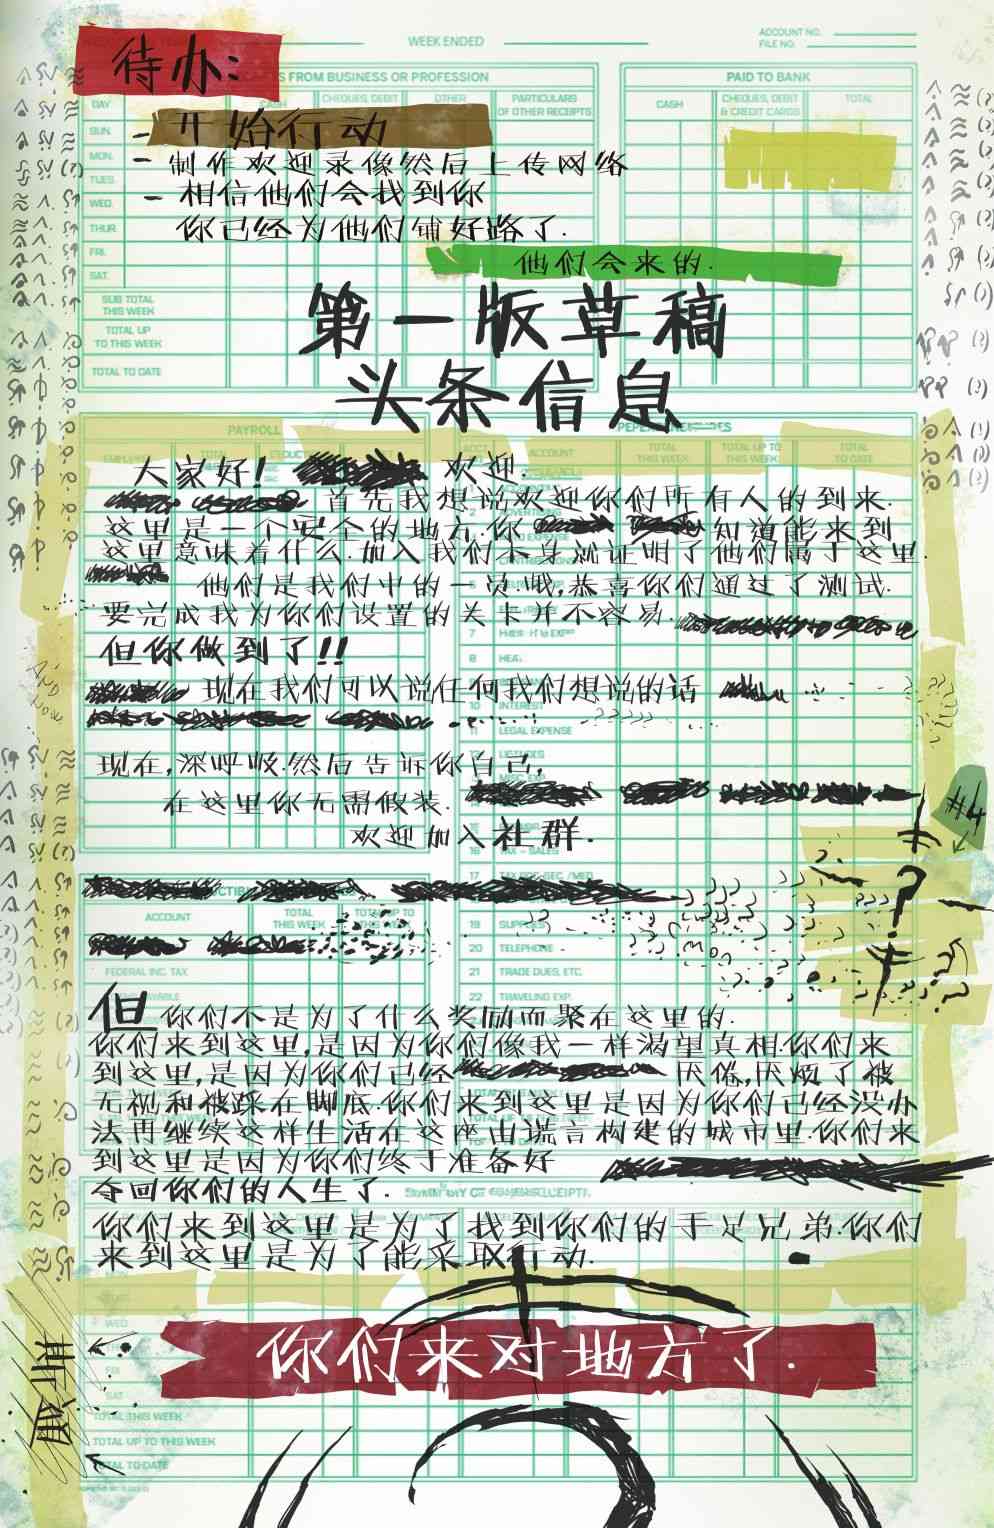 待办:
WEEK ENDED
ACCOUNT NO.
FILE NO.
S FROM BUSINESS OR PROFESSION
PAID TO BANK
DAY
CASH
CHEQUES, DEBIT
OTHER
PARTICULARS
OF OTHER RECEIPTS
CASH
CHEQUES, DEBIT
& CREDIT CARDS
TOTAL
SUN.
- 开始行动
MON.
- 制作欢迎录像然后上传网络
TUES.
- 相信他们会找到你
WED.
THUR.
你已经为他们铺好路了.
FRI.
他们会来的.
SAT.
SUB TOTAL
THIS WEEK
第一版草稿
TOTAL UP
TO THIS WEEK
TOTAL TO DATE
头条信息
PAYROLL
ACCOUNT
TOTAL
THIS WEEK
TOTAL UP TO
THIS WEEK
TOTAL
TO DATE
大家好! 欢迎.
首先我想说欢迎你们所有人的到来.
这里是一个安全的地方.你 知道能来到
这里意味着什么.加入我们本身就证明了他们属于这里.
他们是我们中的一员.哦,恭喜你们通过了测试.
要完成我为你们设置的关卡并不容易.
7
但你做到了!!
8
现在我们可以说任何我们想说的话
10 INTEREST
11 LEGAL EXPENSE
现在,深呼吸.然后告诉你自己,
在这里你无需假装.
#4
欢迎加入社群.
16 TAX - SALES
17
?
ACCOUNT
TOTAL
THIS WEEK
19 SUPPLIES
20 TELEPHONE
FEDERAL INC. TAX
21 TRADE DUES, ETC.
22 TRAVELING EXP.
但你们不是为了什么奖励而聚在这里的.
你们来到这里,是因为你们像我一样渴望真相.你们来
到这里,是因为你们已经 厌倦,厌烦了被
无视和被踩在脚底.你们来到这里是因为你们已经没办
法再继续这样生活在这座由谎言构建的城市里.你们来
到这里是因为你们终于准备好
夺回你们的人生了.
你们来到这里是为了找到你们的手足兄弟.你们
来到这里是为了能采取行动.
WED.
你们来对地方了.
SAT.
TOTAL THIS WEEK
TOTAL UP TO THIS WEEK
TOTAL TO DATE